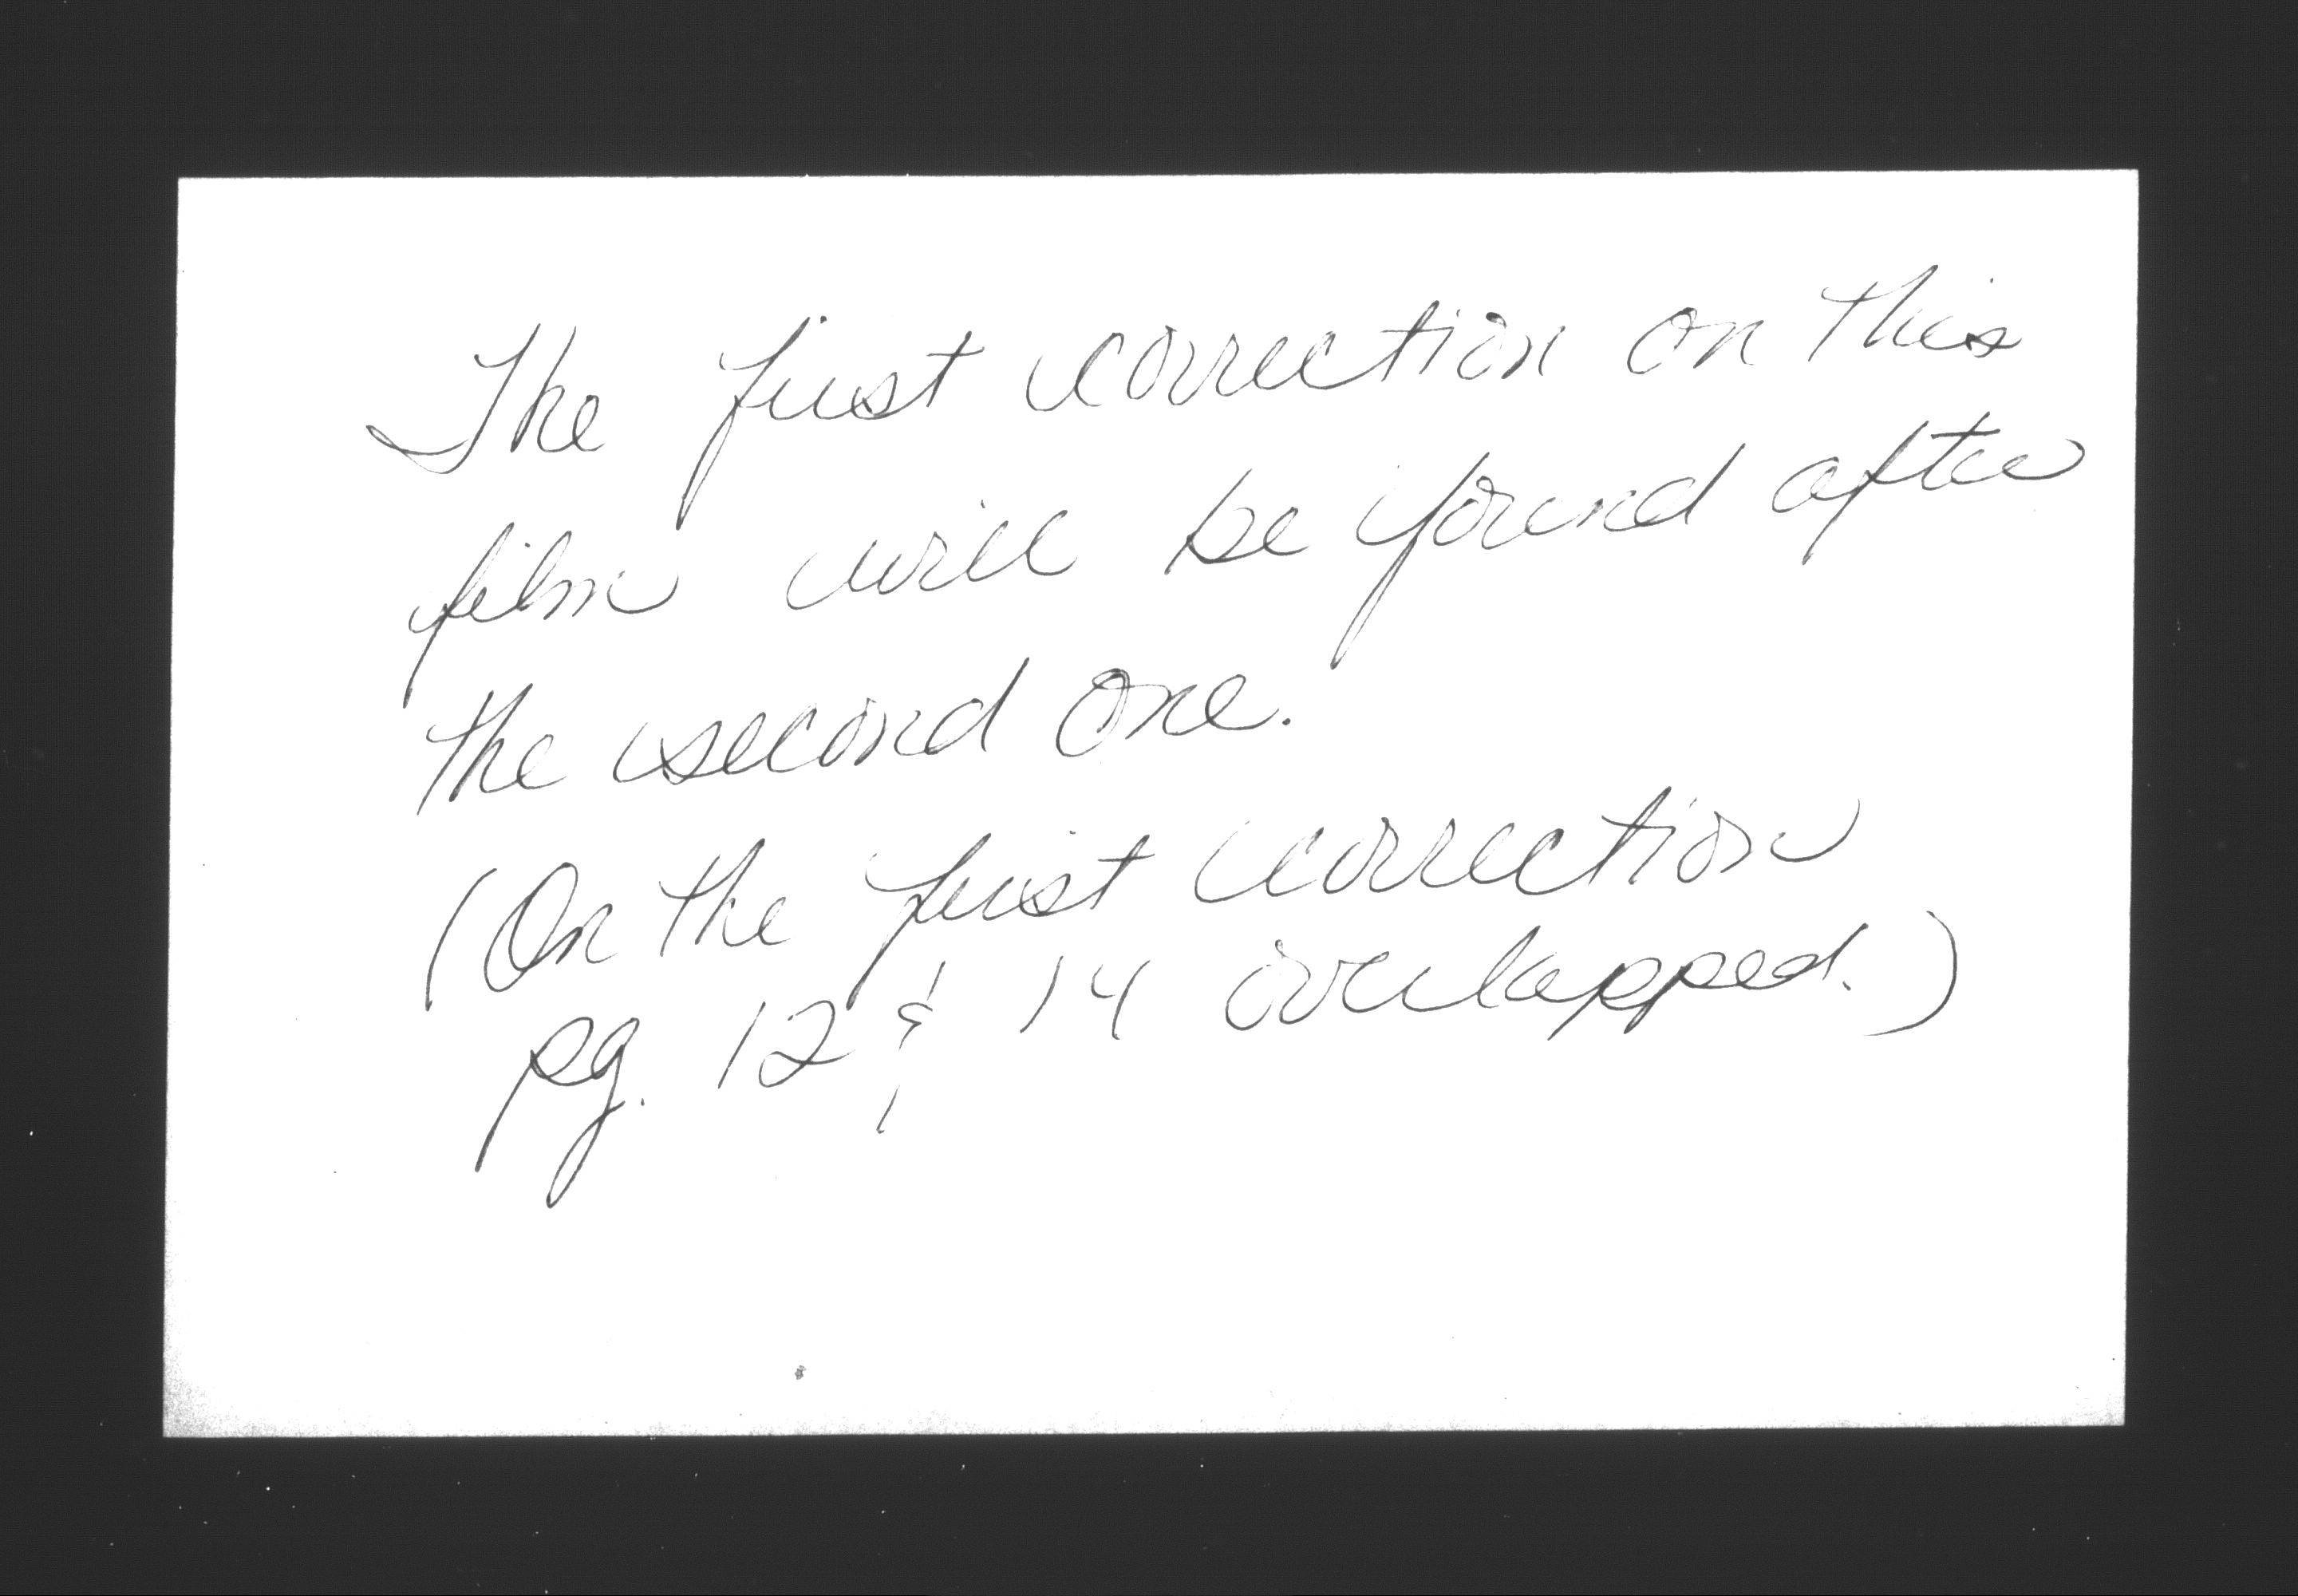 The first correction on this
film will be found after
the second one.
(On the first correction
pg. 12 & 14 overlapped.)